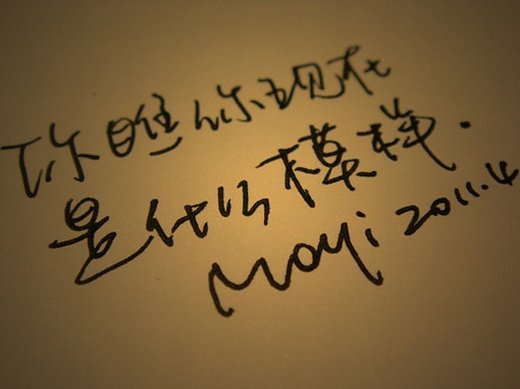 你瞧你现在
是什么模样.
Mayi 2011.4